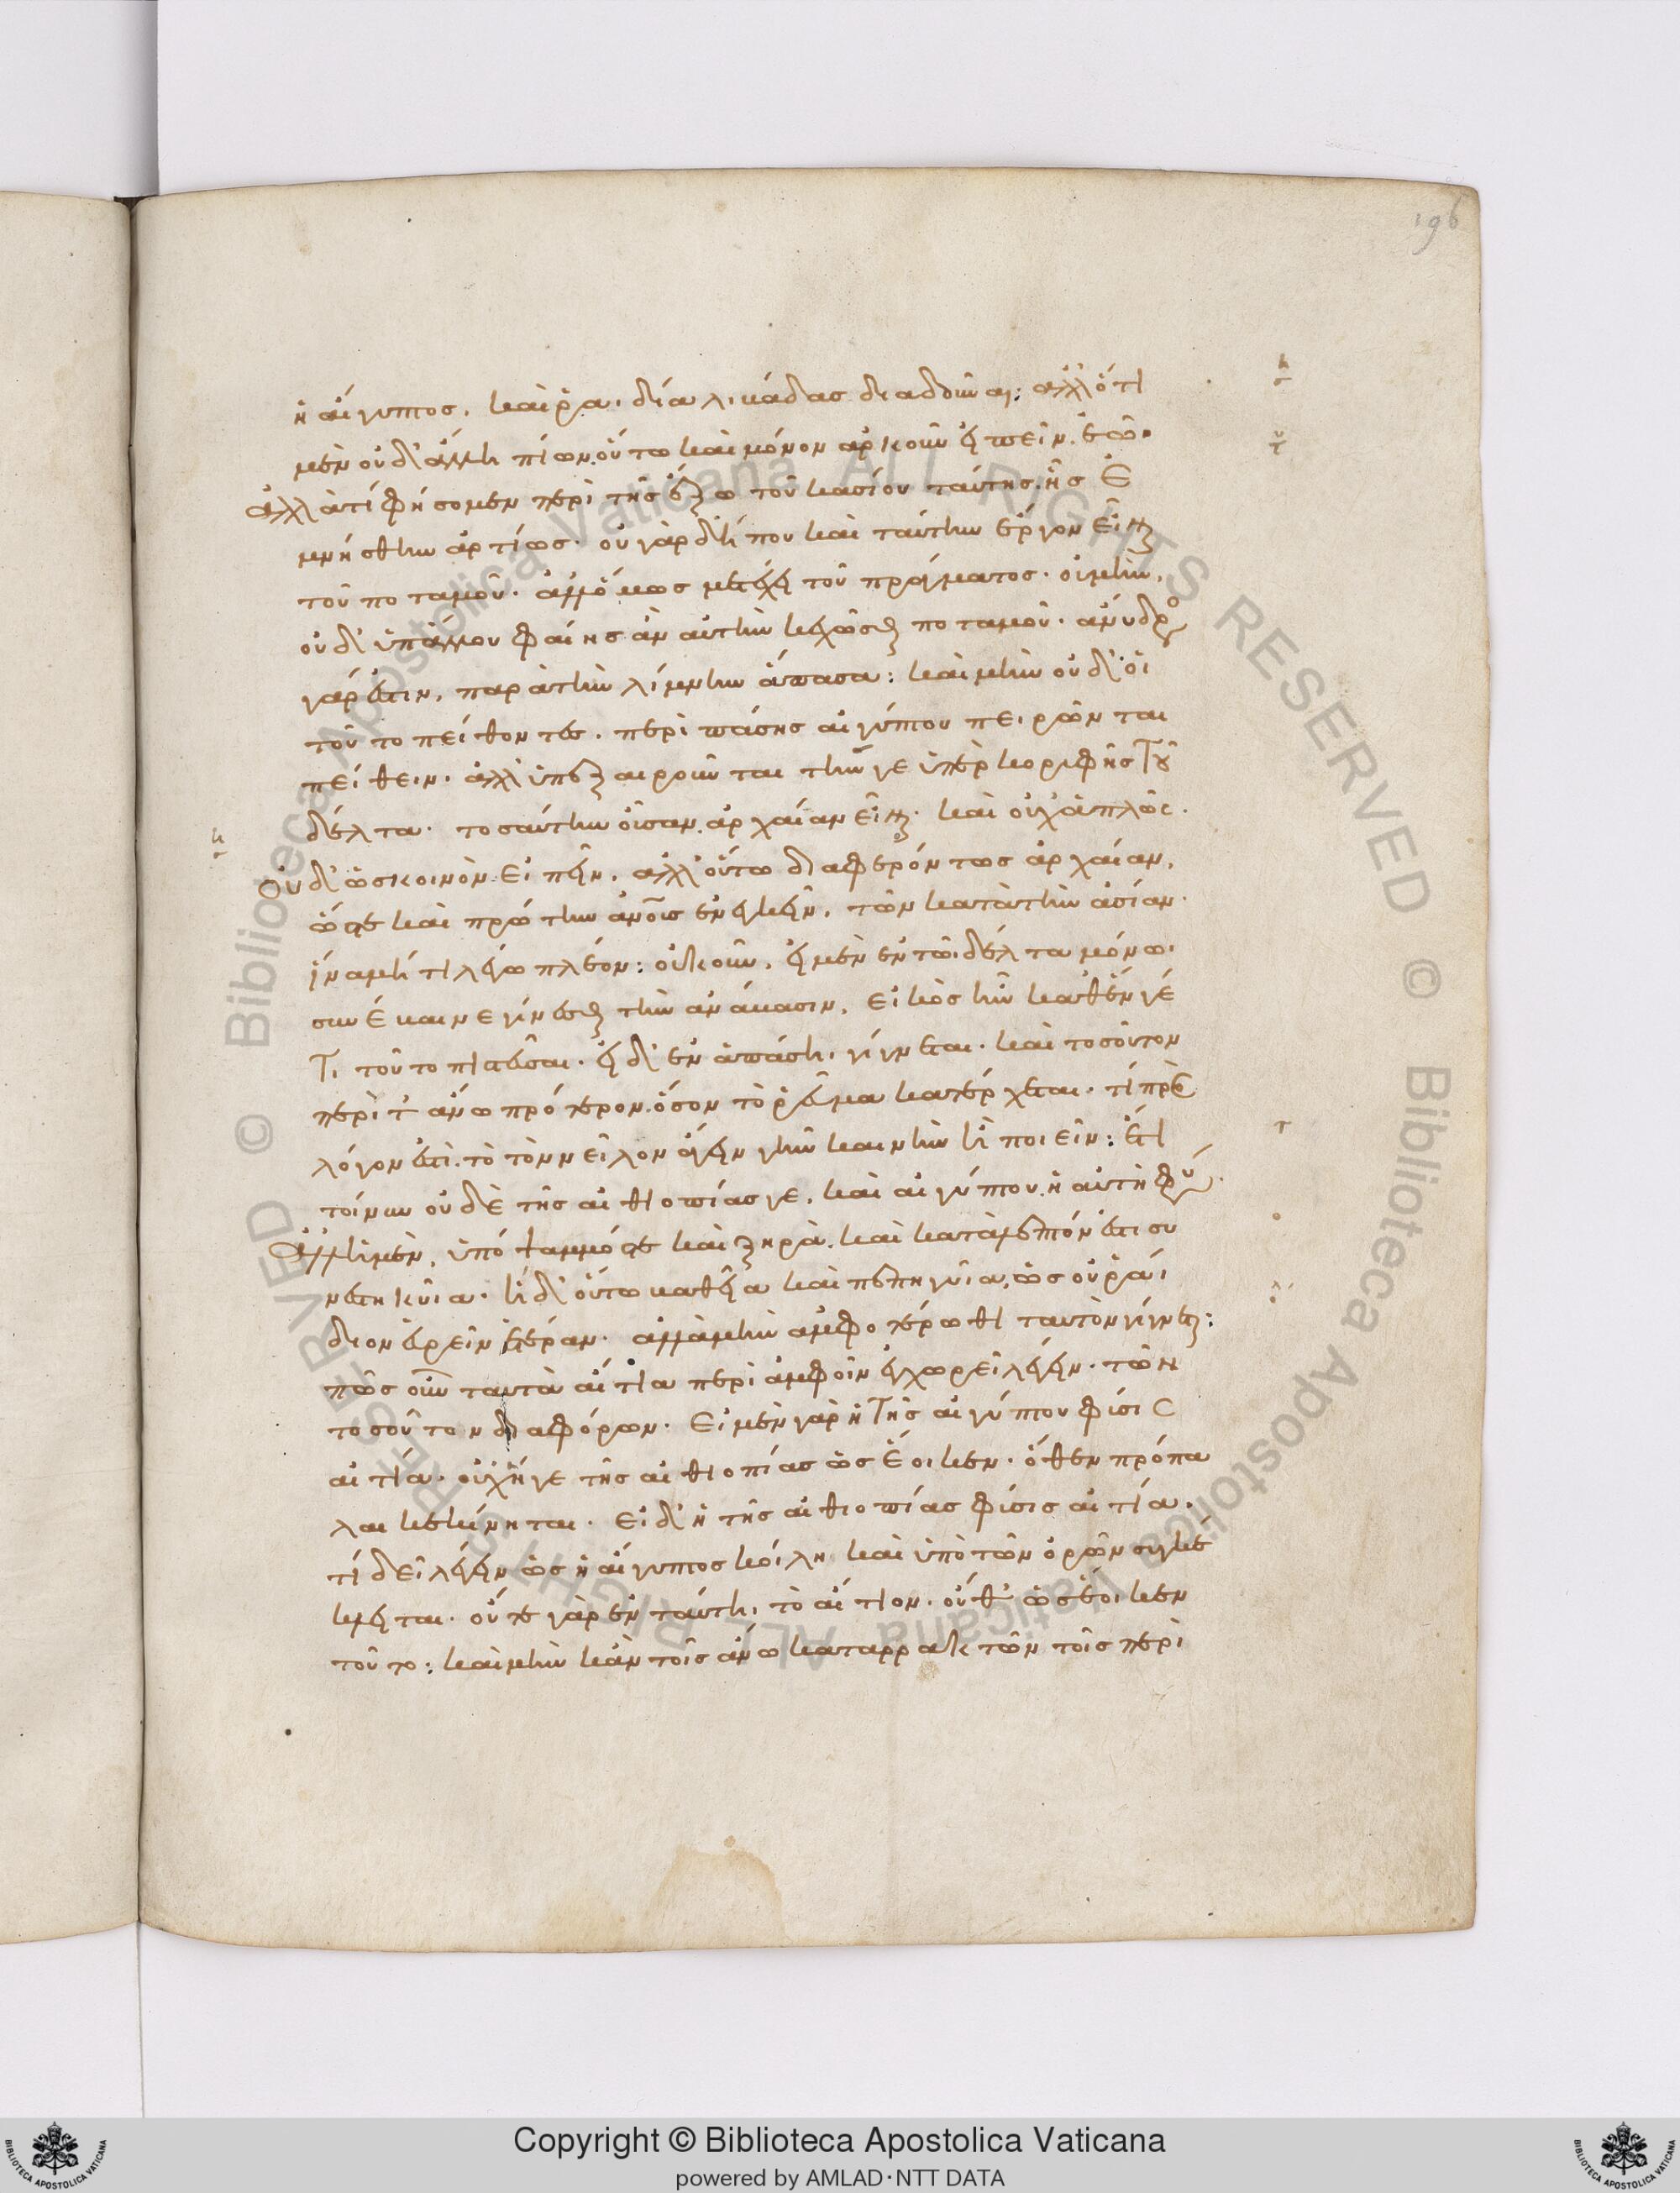 196
ἡ αἴγυπτος. καὶ ῥᾳ. διὰ λιβάδας διαδοῦναι: ἀλλ' ὅτι
μὲν οὐδ' ἄλλῃ πίων. οὕτω καὶ μόνον ἀρκοῦν εἰπεῖν. ἐῶ.
ἀλλὰ τί φήσομεν περὶ τῆς ἔξω τοῦ κασίου ταύτης. ἧς ἐ
μνήσθην ἀρτίως. οὐ γὰρ δήπου καὶ ταύτην ἔργον εἶναι
τοῦ ποταμοῦ. ἀλλ' ὅμως μετέχει τοῦ πράγματος. οὐ μὴν
οὐδ' ὑπ' ἄλλου φαίης ἂν αὐτὴν κεχῶσθαι ποταμοῦ. ἄνυδρο
γάρ ἐστιν. παρὰ τὴν λίμνην ἅπασα: καὶ μὴν οὐδ' οἱ
τοῦτο πείθοντες. περὶ πάσης αἰγύπτου πειρῶνται
πείθειν. ἀλλ' ὑπεξαιροῦνται τήν γε ὑπὲρ κορυφῆς τοῦ
δέλτα. τοσαύτην οὖσαν ἀρχαίαν εἶναι. καὶ οὐχ ἁπλῶς.
οὐδ' ὡς κοινὸν εἰπεῖν. ἀλλ' οὕτω διαφερόντως ἀρχαίαν.
ὥστε καὶ πρώτην ἀνοῖς ἐνεγκεῖν. τῶν κατὰ τὴν ἀσίαν.
ἵνα μή τι λέγω πλέον: οὐκοῦν. εἰ μὲν ἐν τῶι δέλτα μόνωι
συνέβαινε γίνεσθαι τὴν ἀνάβασιν. εἰκὸς ἦν καθ' ἕν γέ
τι τοῦτο πιστεῦσαι. εἰ δ' ἐν ἁπάσηι γίγνεται. καὶ τοσοῦτον
περὶ τ ἄνω πρότερον. ὅσον τὸ ῥεῦμα κατέρχεται. τί πρὸς
λόγον ἐστὶ. τὸ τὸν νεῖλον ἄγειν γῆν καινὴν ἢ ποιεῖν: ἔτι
τοίνυν οὐδὲ τῆς αἰθιοπίας γε. καὶ αἰγύπτου. ἡ αὐτὴ φύ
ἀλλ' ἡ μὲν. ὑπόψαμμός τε καὶ ξηρὰ. καὶ κατὰ μετόν ἐστι συ
νεστηκυῖα. ἡ δ' οὕτω βαθεῖα καὶ πεπηγυῖα, ὡς οὐ ῥάι
διον εὑρεῖν ἑτέραν. ἀλλὰ μὴν ἀμφοτέρωθι ταυτὸν γίγνεται:
πῶς οὖν ταυτὰ αἴτια περὶ ἀμφοῖν ἐγχωρεῖ λέγειν. τῶν
τοσοῦτον διαφόρων. εἰ μὲν γὰρ ἡ τῆς αἰγύπτου φύσις
αἰτία. οὐχ ἥ γε τῆς αἰθιοπίας ὡς ἔοικεν. ὅθεν πρόπα
λαι κεκίνηται. εἰ δ' ἡ τῆς αἰθιοπίας φύσις αἰτία.
τί δεῖ λέγειν ὡς ἡ αἴγυπτος κοίλη καὶ ὑπὸ τῶν ὀρῶν συγκέ
κλεισται. οὔτε γὰρ ἐν ταύτηι τὸ αἴτιον. οὔθ' ὡς ἔοικεν
τοῦτο: καὶ μὴν κἀν τοῖς ἄνω καταρρακτῶν τοῖς περὶ
Copyright © Biblioteca Apostolica Vaticana
powered by AMLAD・NTT DATA